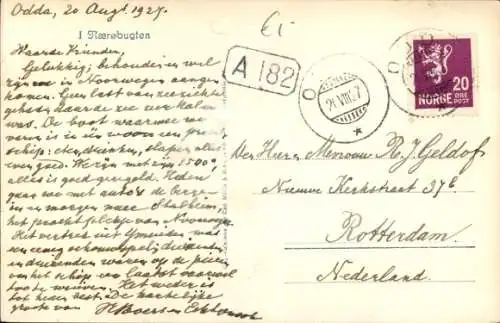 Odda, 20 Augt. 1927.
I Nærøbugten
Waarde Vrienden,
Gelukkig, behouden en wel
zijn we in Noorwegen aange-
komen. Geen last van zeeziekte
gehad, daar de zee kalm
was. De boot waarmee we
varen is er een van een
schip: eten, drinken, slapen alles
even goed. We zijn met zijn 1500,
alles is goed geregeld. Heden
gaan we met auto's de berge
in en morgen naar Stalheim,
het prachtplekje van Noorwegen
Het vertrek uit IJmuiden was
een eenig schouwspel; duizenden
en duizenden waren op de pieren
om het schip van laatst vaarwel
toe te wuiven. Het weder is
tot heden best. De hartelijke
groete van
A 182
21 VIII 27
20
NORGE
ØRE
POST
Den Heer en Mevrouw R. J. Geldof
Nieuwe Kerkstraat 37b
Rotterdam.
Nederland.